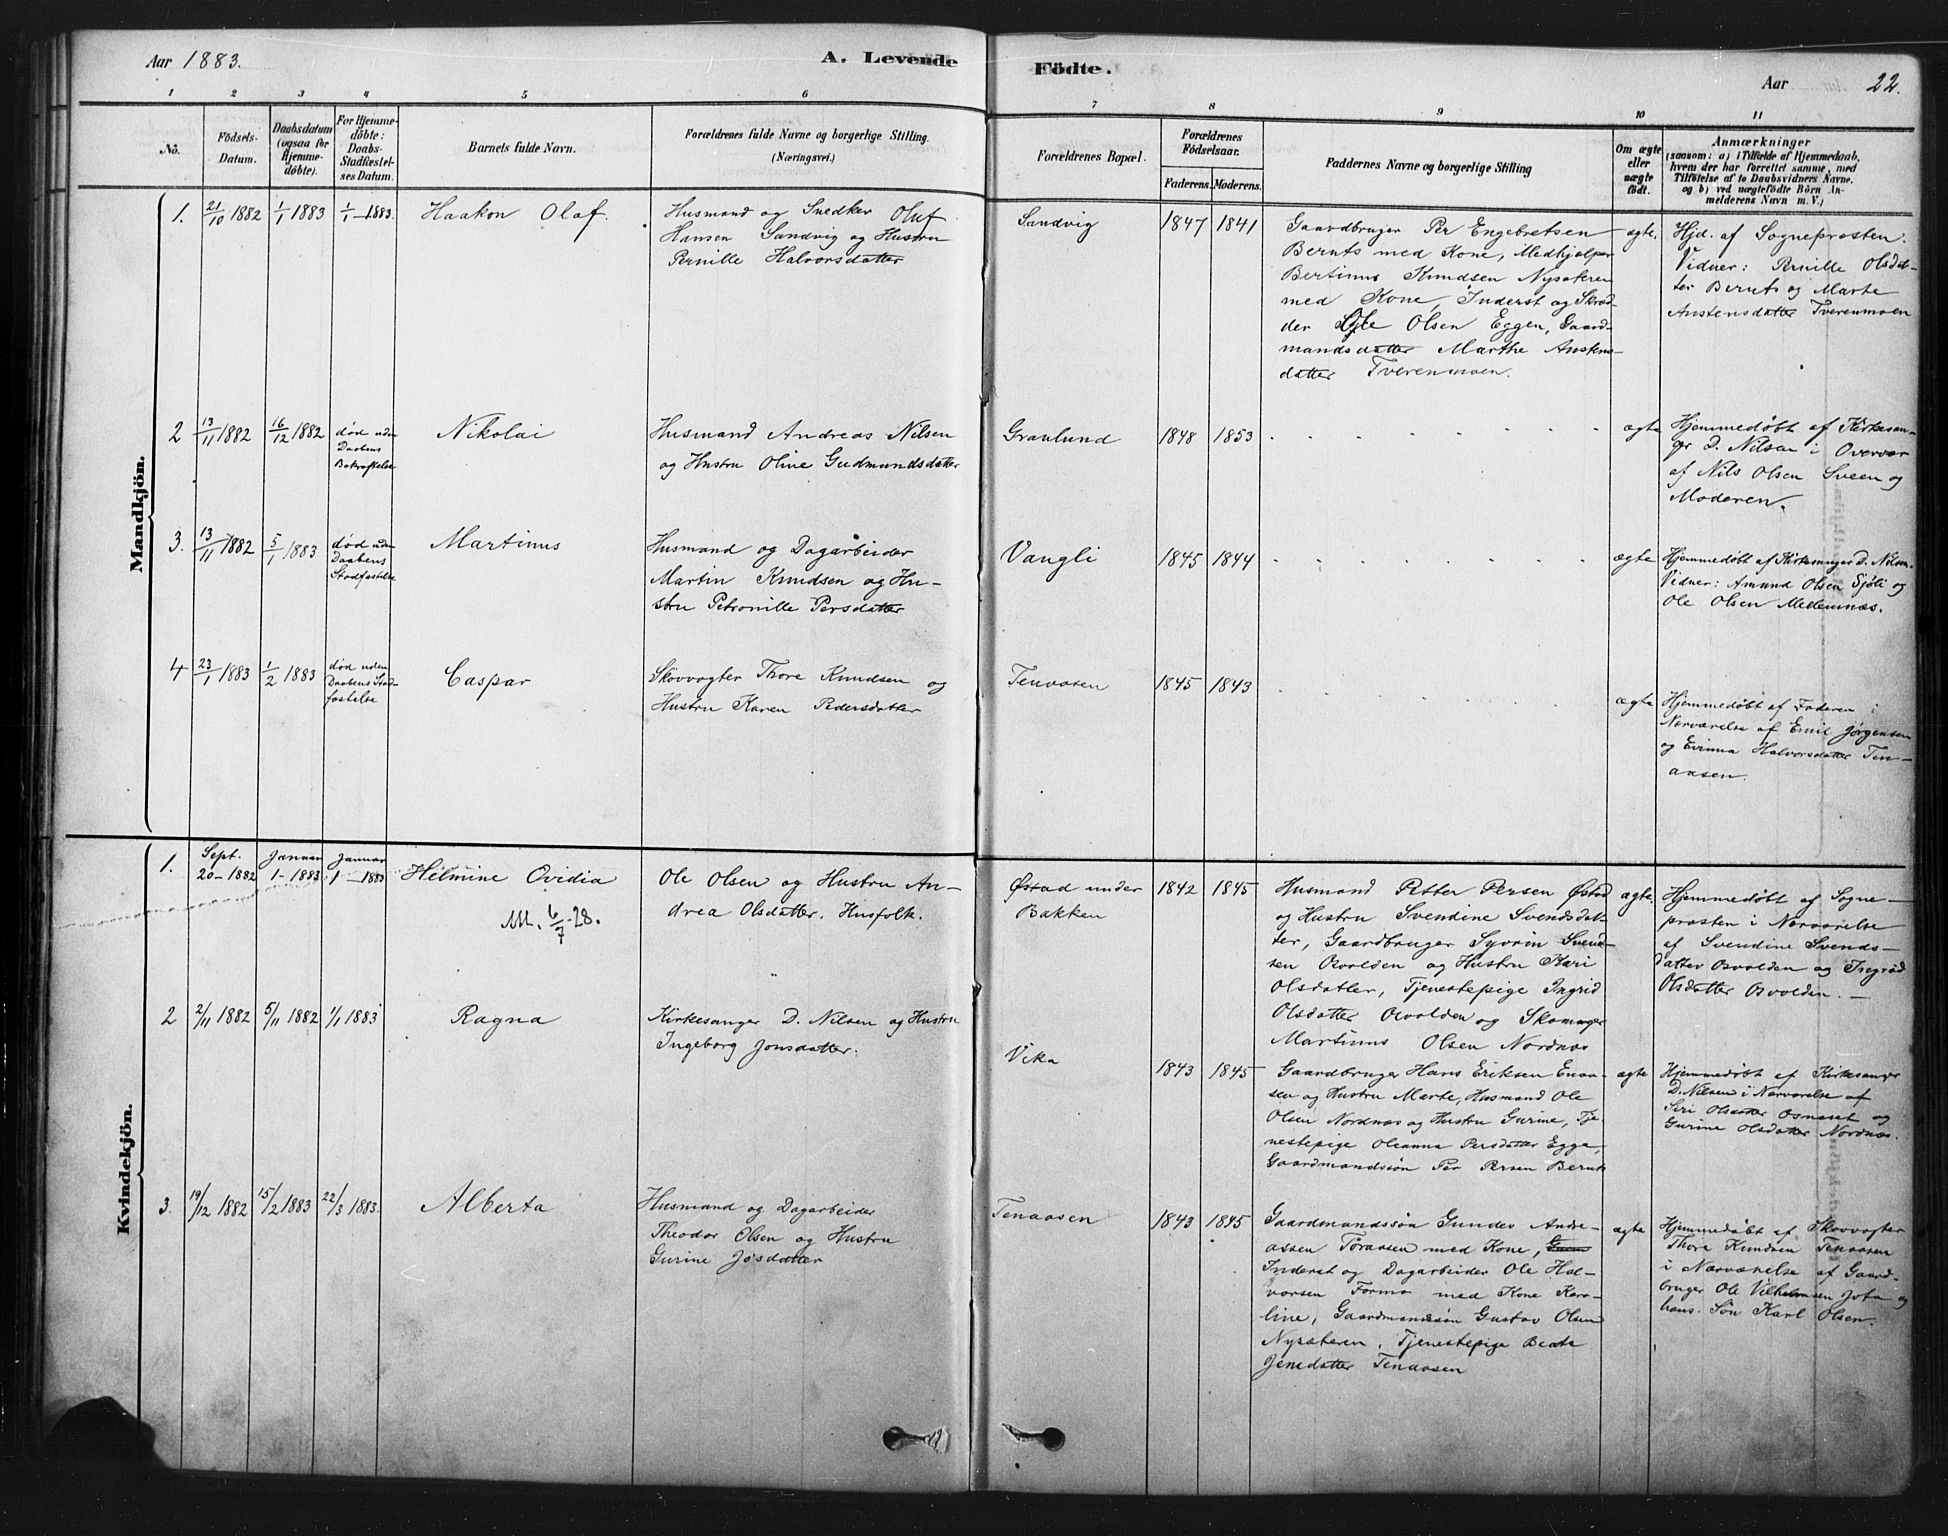 Aar 1883.
A. Levende Födte.
Aar 22.
1 2 3 4 5 6 7 8 9 10 11
No.
Födsels-
Datum.
Daabsdatum
(ogsaa for
Hjemme-
döbte).
For Hjemme-
döbte:
Daabs-
Stadfæstel-
ses Datum.
Barnets fulde Navn.
Forældrenes fulde Navne og borgerlige Stilling.
(Næringsvei.)
Forældrenes Bopæl.
Forældrenes
Födselsaar.
Faderens. Moderens.
Faddernes Navne og borgerlige Stilling
Om ægte
eller
uægte
födt.
Anmærkninger
(saasom: a) i Tilfælde af Hjemmedaab,
hvem der har forrettet samme, med
Tilföielse af to Daabsvidners Navne,
og b) ved uægtefödte Börn An-
melderens Navn m. V.)
Mandkjön.
1. 21/10 1882 1/1 1883 1/1 1883. Haakon Olaf
Husmand og Snedker Oluf
Hansen Sandvig og Hustru
Pernille Halvorsdatter
Sandvig 1847 1841
Gaardbruger Per Engebretsen
Bernts med Kone, Medhjælper
Bertinus Knudsen Nysæteren
med Kone, Inderst og Skræd-
der Ole Olsen Eggen, Gaard-
mandsdatter Marthe Anstens-
datter Tverenmoen.
ægte.
Hjd. af Sognepresten.
Vidner: Pernille Olsdat-
ter Bernts og Marte
Anstensdatter Tverenmoen
2 13/11 1882 16/12 1882
død uden
Daabens
Bekræftelse
Nikolai
Husmand Andreas Nilsen
og Hustru Oline Gudmundsdatter
Graulund 1848 1853
ægte
Hjemmedøbt af Kirkesan-
ger D. Nilsen i Overvær
af Nils Olsen Sveen og
Moderen.
3. 13/11 1882 5/1 1883
død uden
Daabens
Stadfæstelse
Martinus
Husmand og Dagarbeider
Martin Knudsen og Hu-
stru Petronille Persdatter
Vangli 1845 1844
ægte
Hjemmedøbt af Kirkesanger D. Nilsen.
Vidner: Amund Olsen Sjøli og
Ole Olsen Mellemnæs.
4 23/1 1883 1/2 1883
død uden
Daabens Stad-
fæstelse
Caspar
Skovvogter Thore Knudsen og
Hustru Karen Pedersdatter
Tenaasen 1845 1843
ægte
Hjemmedøbt af Faderen i
Nærværelse af Emil Jørgensen
og Evinna Halvorsdatter Ten-
aasen.
Kvindekjön.
1. Sept. 20- 1882 Januar 1- 1883 Januar 1- 1883
Helmine Ovidia
M. 6/7-28.
Ole Olsen og Hustru An-
drea Olsdatter. Husfolk.
Østad under
Bakken
1842 1845
Husmand Petter Persen Østad
og Hustru Svendine Svendsdat-
ter, Gaardbruger Syvrin Svend-
sen Osvolden og Hustru Kari
Olsdatter, Tjenestepige Ingrid
Olsdatter Osvolden og Skomager
Martinus Olsen Nordnæs
ægte.
Hjemmedøbt af Sogne-
presten i Nærværelse
af Svendine Svends-
datter Osvolden og Ingrid
Olsdatter Osvolden. -
2 2/11 1882 5/11 1882 1/1 1883 Ragna
Kirkesanger D. Nilsen og Hustru
Ingeborg Jonsdatter.
Vika
1843 1845
Gaardbruger Hans Eriksen Enaa-
sen og Hustru Marte, Husmand Ole
Olsen Nordnæs og Hustru Gurine, Tje-
nestepige Oleanna Persdatter Egge,
Gaardmandssøn Per Persen Bernts
ægte
Hjemmedøbt af Kirkesanger
D. Nilsen i Nærværelse af
Siri Olsdatter Osnæset og
Gurine Olsdatter Nordnæs.
3. 19/12 1882 15/2 1883 22/3 1883. Alberta
Husmand og Dagarbeider
Theodor Olsen og Hustru
Gurine Josdatter
Tenaasen 1843 1845
Gaardmandssøn Gunder Andre-
assen Toraasen med Kone,
Inderst og Dagarbeider Ole Hal-
vorsen Formo med Kone Karo-
line, Gaardmandssøn Gustav Olsen
Nysæteren. Tjenestepige Beate
Jensdatter Tenaasen
ægte
Hjemmedøbt af Skovvogter
Thore Knudsen Tenaasen
i Nærværelse af Gaard-
bruger Ole Vilhelmsen Jota og
hans Søn Karl Olsen.